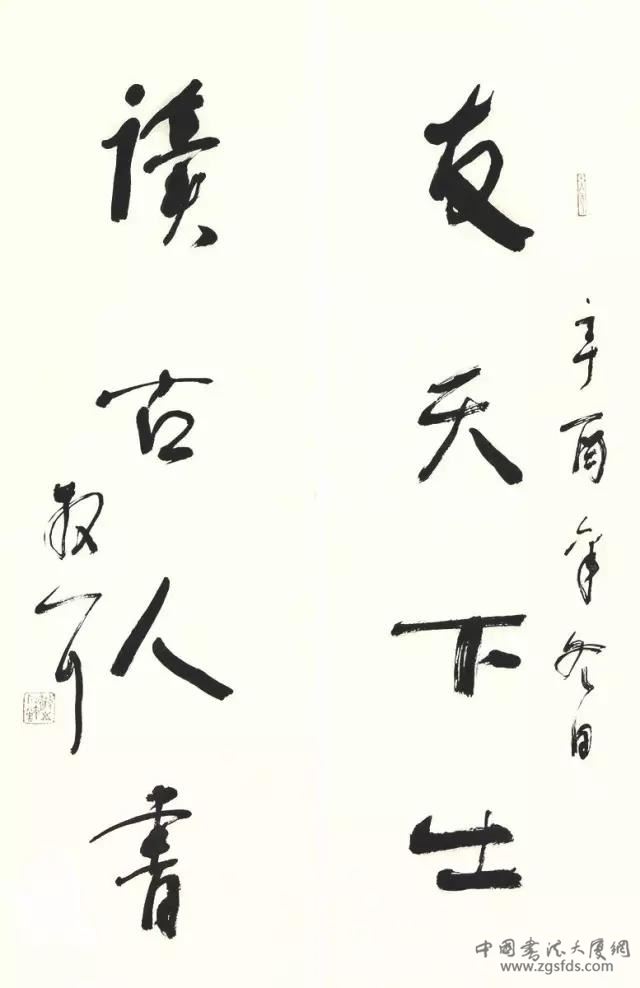 辛酉年冬日
友天下士
讀古人書
散耳
中國書法大厦網
www.zgsfds.com